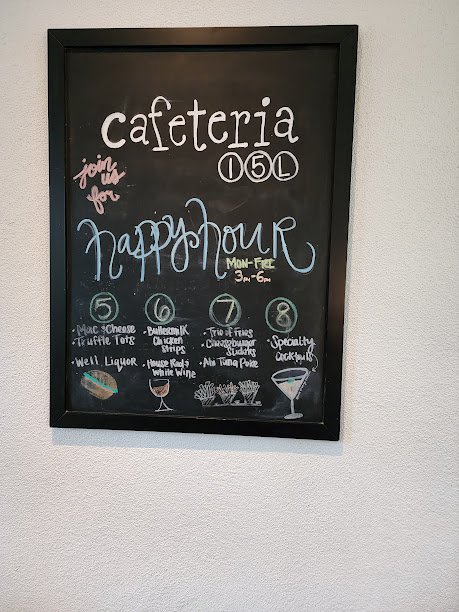 cafeteria
15L
join
us
for
happy hour
MON-FRI
3PM-6PM
5
• Mac & Cheese
• Truffle Tots
• Well Liquor
6
• Buttermilk
Chicken
Strips
• House Red &
White Wine
7
• Trio of Fries
• Cheeseburger
Sliders
• Ahi Tuna Poke
8
• Specialty
Cocktails